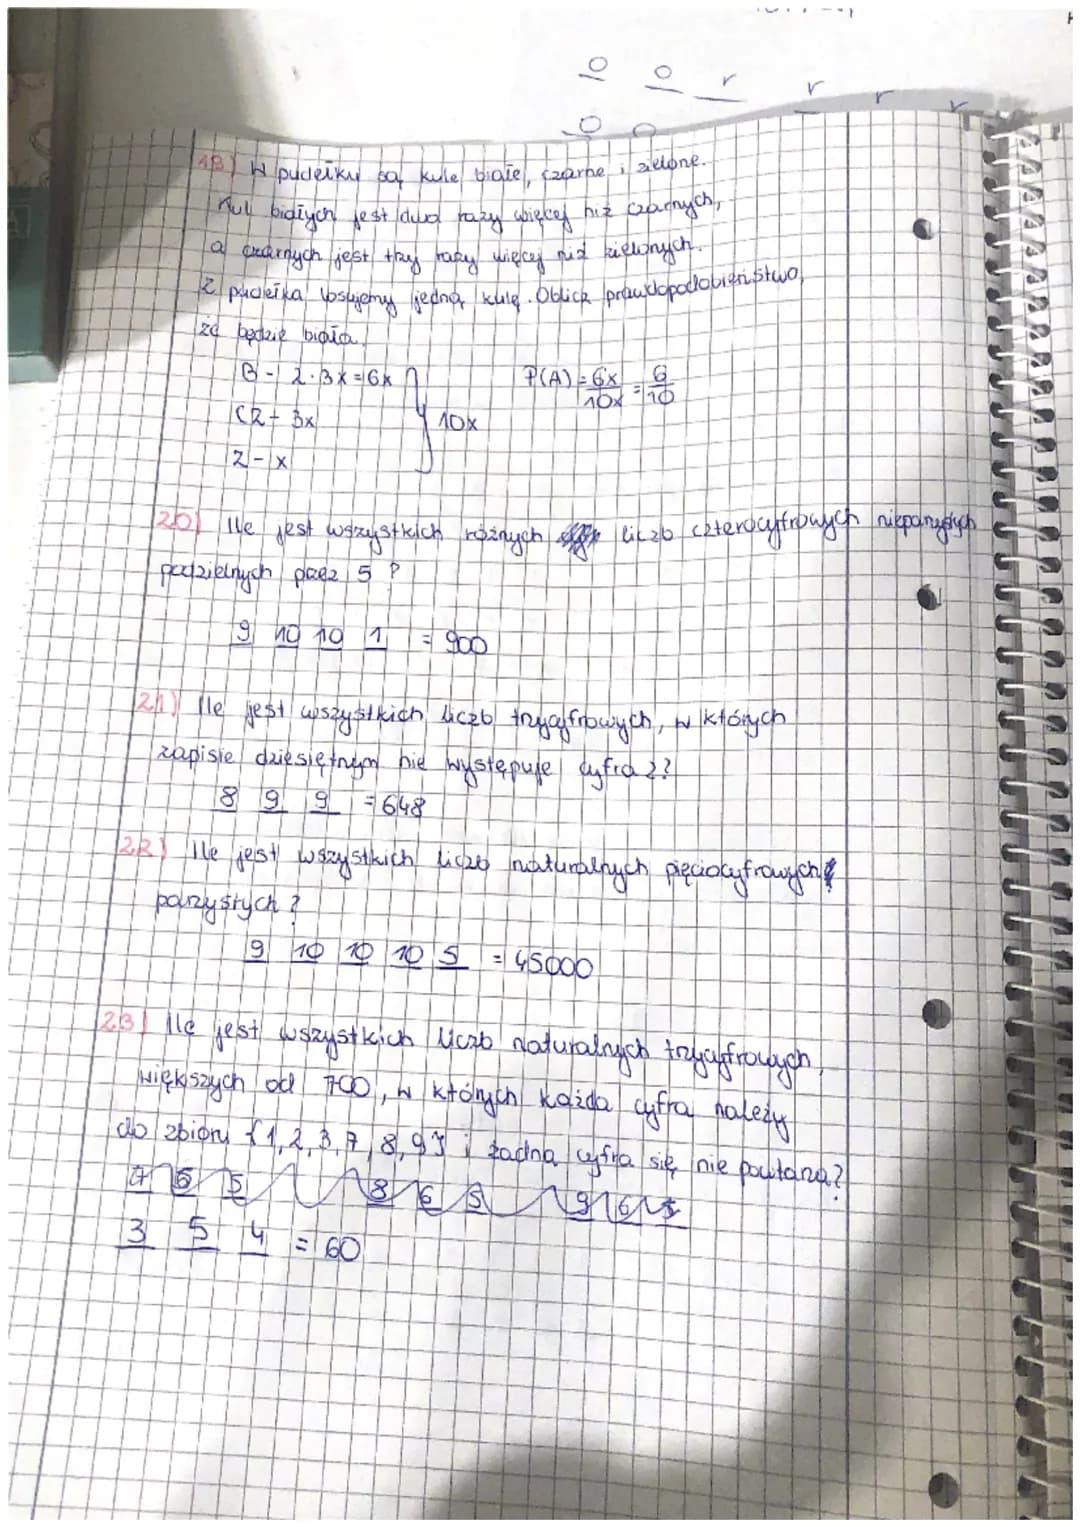 o o r r r r
o o
18) W pudełku są kule białe, czarne i zielone.
Kul białych jest dwa razy więcej niż czarnych,
a czarnych jest trzy razy więcej niż zielonych.
Z pudełka losujemy jedną kulę. Oblicz prawdopodobieństwo,
że będzie biała.
B - 2·3x=6x
CZ - 3x
Z - x
10x
P(A) = 6x/10x = 6/10
20) Ile jest wszystkich różnych liczb czterocyfrowych nieparzystych
podzielnych przez 5 ?
9 10 10 1 = 900
21) Ile jest wszystkich liczb trzycyfrowych, w których
zapisie dziesiętnym nie występuje cyfra 2?
8 9 9 = 648
22) Ile jest wszystkich liczb naturalnych pięciocyfrowych
parzystych ?
9 10 10 10 5 = 45000
23) Ile jest wszystkich liczb naturalnych trzycyfrowych,
większych od 700, w których każda cyfra należy
do zbioru {1,2,3,7,8,9} i żadna cyfra się nie powtarza?
7 6 5 8 6 5 9 6 5
3 5 4 = 60